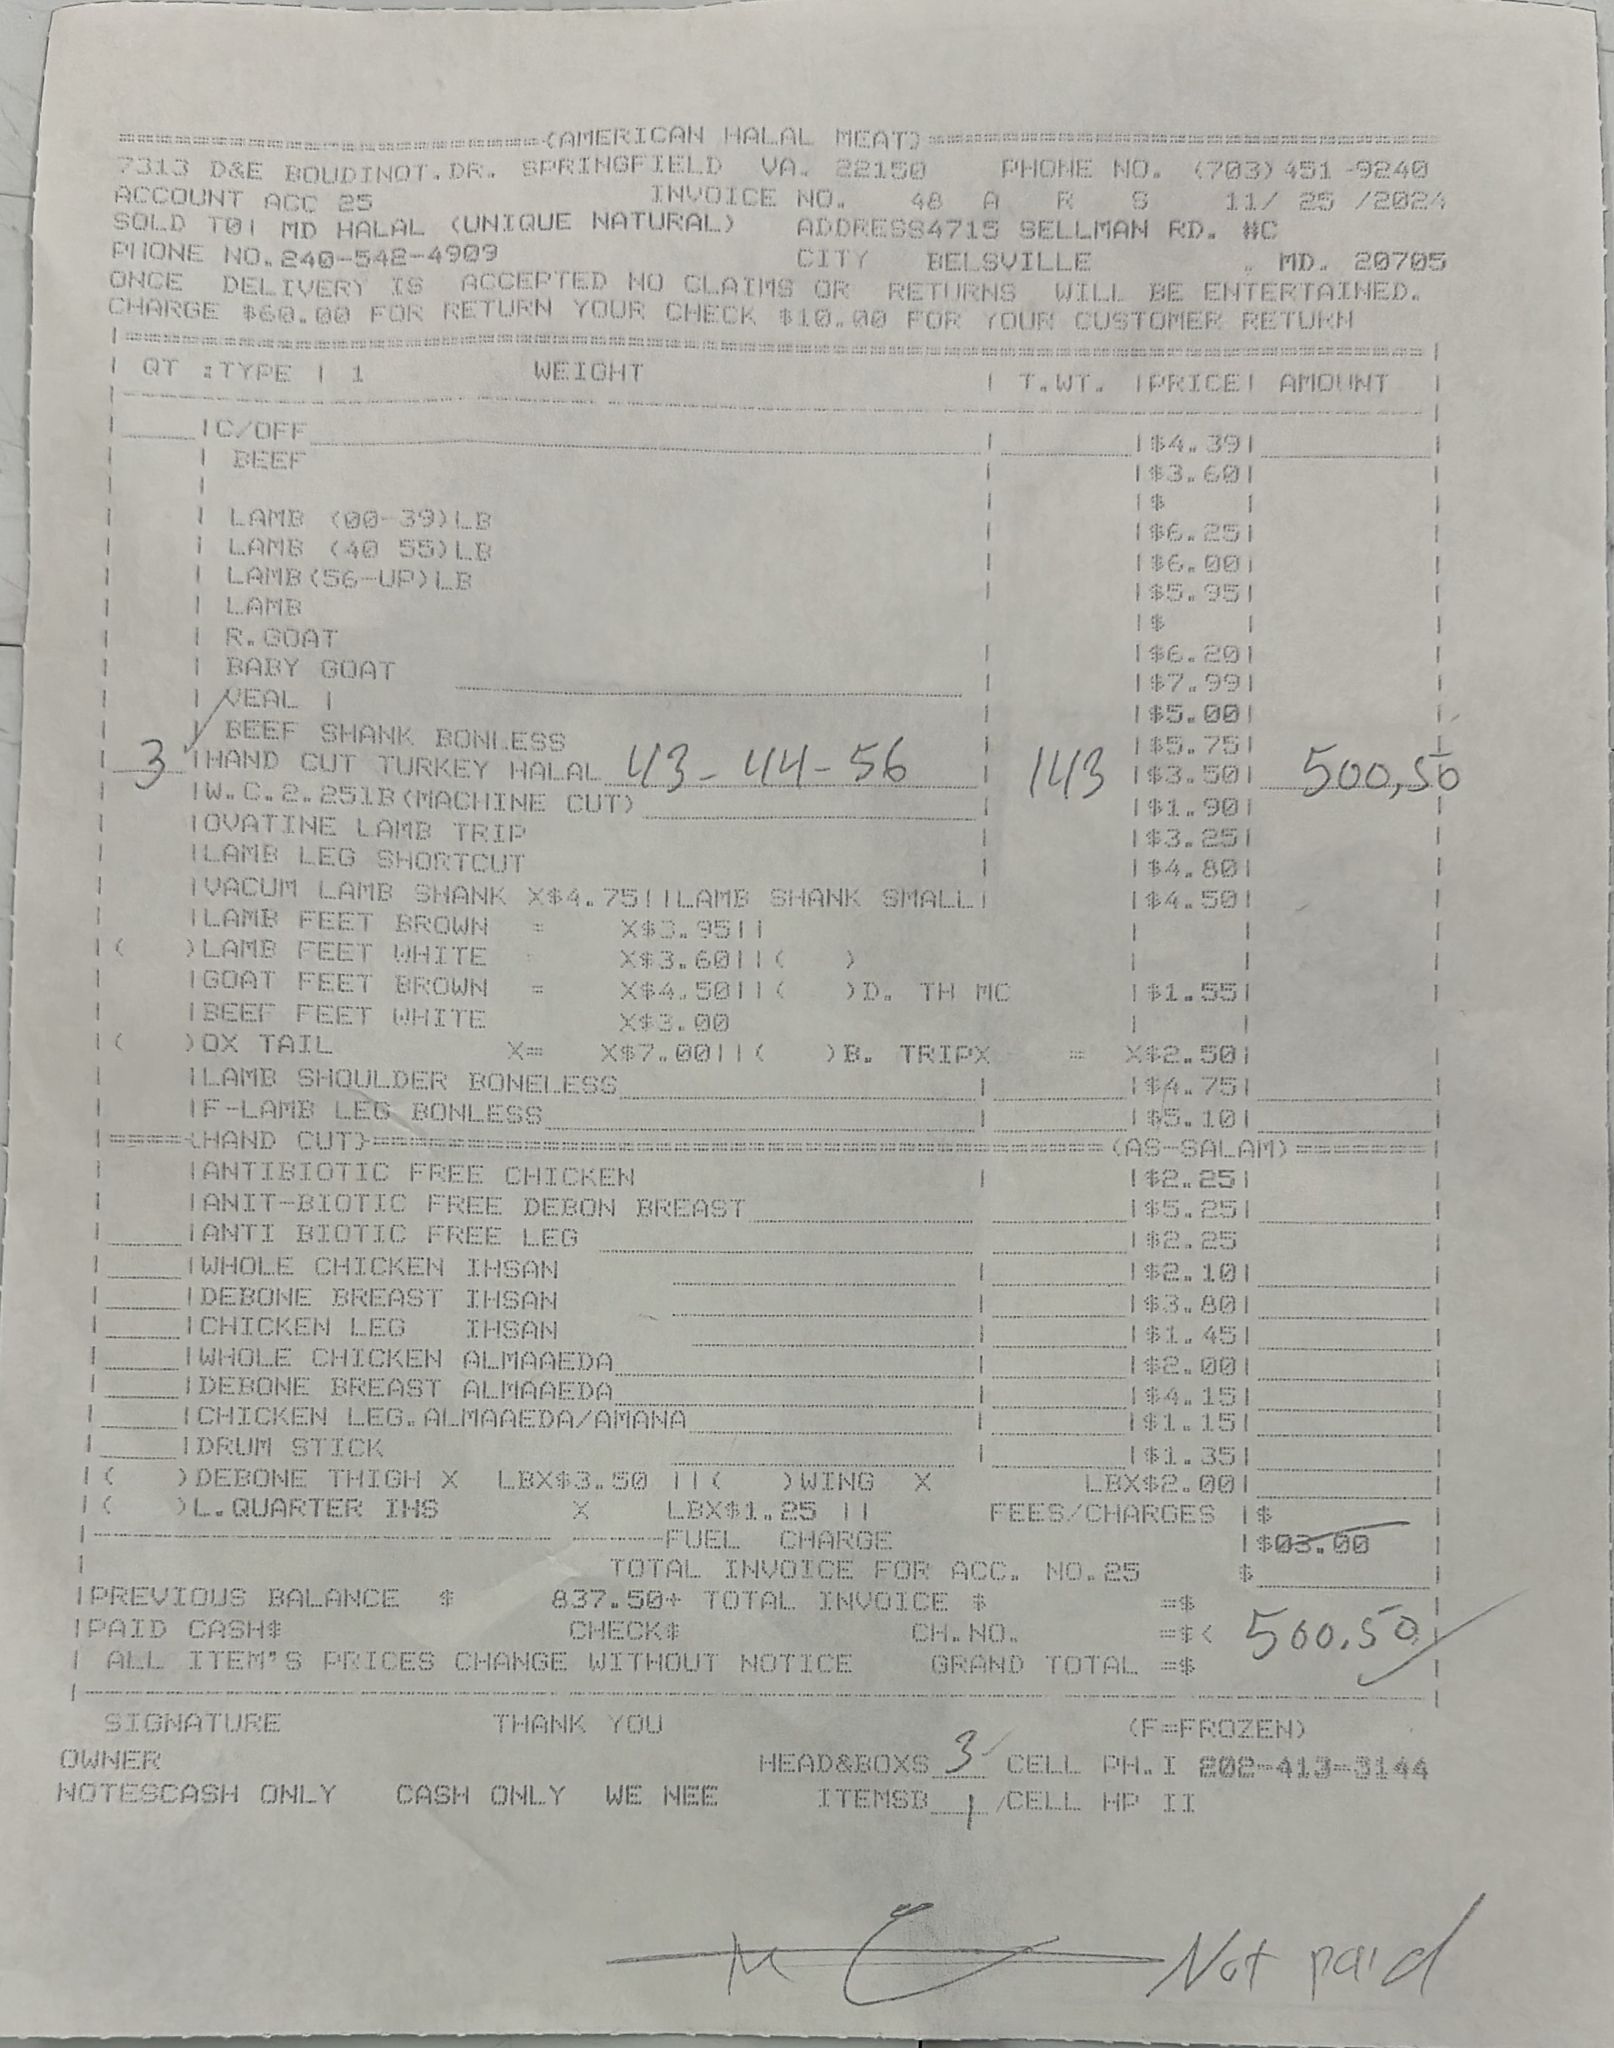 ==========(AMERICAN HALAL MEAT)==========
7313 D&E BOUDINOT.DR. SPRINGFIELD VA. 22150 PHONE NO. (703)451-9240
ACCOUNT ACC 25 INVOICE NO. 48 A R S 11/ 25 /2024
SOLD TO| MD HALAL (UNIQUE NATURAL) ADDRESS4715 SELLMAN RD. #C
PHONE NO.240-542-4909 CITY BELSVILLE . MD. 20705
ONCE DELIVERY IS ACCEPTED NO CLAIMS OR RETURNS WILL BE ENTERTAINED.
CHARGE $60.00 FOR RETURN YOUR CHECK $10.00 FOR YOUR CUSTOMER RETURN
QT :TYPE | 1 WEIGHT | T.WT. |PRICE| AMOUNT
|C/OFF |$4.39|
| BEEF |$3.60|
| |$ |
| LAMB (00-39)LB |$6.25|
| LAMB (40 55)LB |$6.00|
| LAMB(56-UP)LB |$5.95|
| LAMB |$ |
| R.GOAT |$6.20|
| BABY GOAT |$7.99|
| VEAL | |$5.00|
| BEEF SHANK BONLESS |$5.75|
3 |HAND CUT TURKEY HALAL 43-44-56 | 143 |$3.50| 500,50
|W.C.2.251B(MACHINE CUT) |$1.90|
|OVATINE LAMB TRIP |$3.25|
|LAMB LEG SHORTCUT |$4.80|
|VACUM LAMB SHANK X$4.75||LAMB SHANK SMALL| |$4.50|
|LAMB FEET BROWN = X$3.95||
|( )LAMB FEET WHITE X$3.60||( )
|GOAT FEET BROWN = X$4.50||( )D. TH MC |$1.55|
|BEEF FEET WHITE X$3.00
|( )OX TAIL X= X$7.00||( )B. TRIPX = X$2.50|
|LAMB SHOULDER BONELESS |$4.75|
|F-LAMB LEG BONLESS |$5.10|
|=====(HAND CUT)==========(AS-SALAM)=======|
|ANTIBIOTIC FREE CHICKEN |$2.25|
|ANIT-BIOTIC FREE DEBON BREAST |$5.25|
|ANTI BIOTIC FREE LEG |$2.25
|WHOLE CHICKEN IHSAN |$2.10|
|DEBONE BREAST IHSAN |$3.80|
|CHICKEN LEG IHSAN |$1.45|
|WHOLE CHICKEN ALMAAEDA |$2.00|
|DEBONE BREAST ALMAAEDA |$4.15|
|CHICKEN LEG.ALMAAEDA/AMANA |$1.15|
|DRUM STICK |$1.35|
|( )DEBONE THIGH X LBX$3.50 ||( )WING X LBX$2.00|
|( )L.QUARTER IHS X LBX$1.25 || FEES/CHARGES |$
FUEL CHARGE |$03.00
TOTAL INVOICE FOR ACC. NO.25 $
|PREVIOUS BALANCE $ 837.50+ TOTAL INVOICE $ =$
|PAID CASH$ CHECK$ CH.NO. =$< 500.50
| ALL ITEM'S PRICES CHANGE WITHOUT NOTICE GRAND TOTAL =$
SIGNATURE THANK YOU (F=FROZEN)
OWNER HEAD&BOXS 3 CELL PH.I 202-413-3144
NOTESCASH ONLY CASH ONLY WE NEE ITEMSB 1 /CELL HP II
Not paid